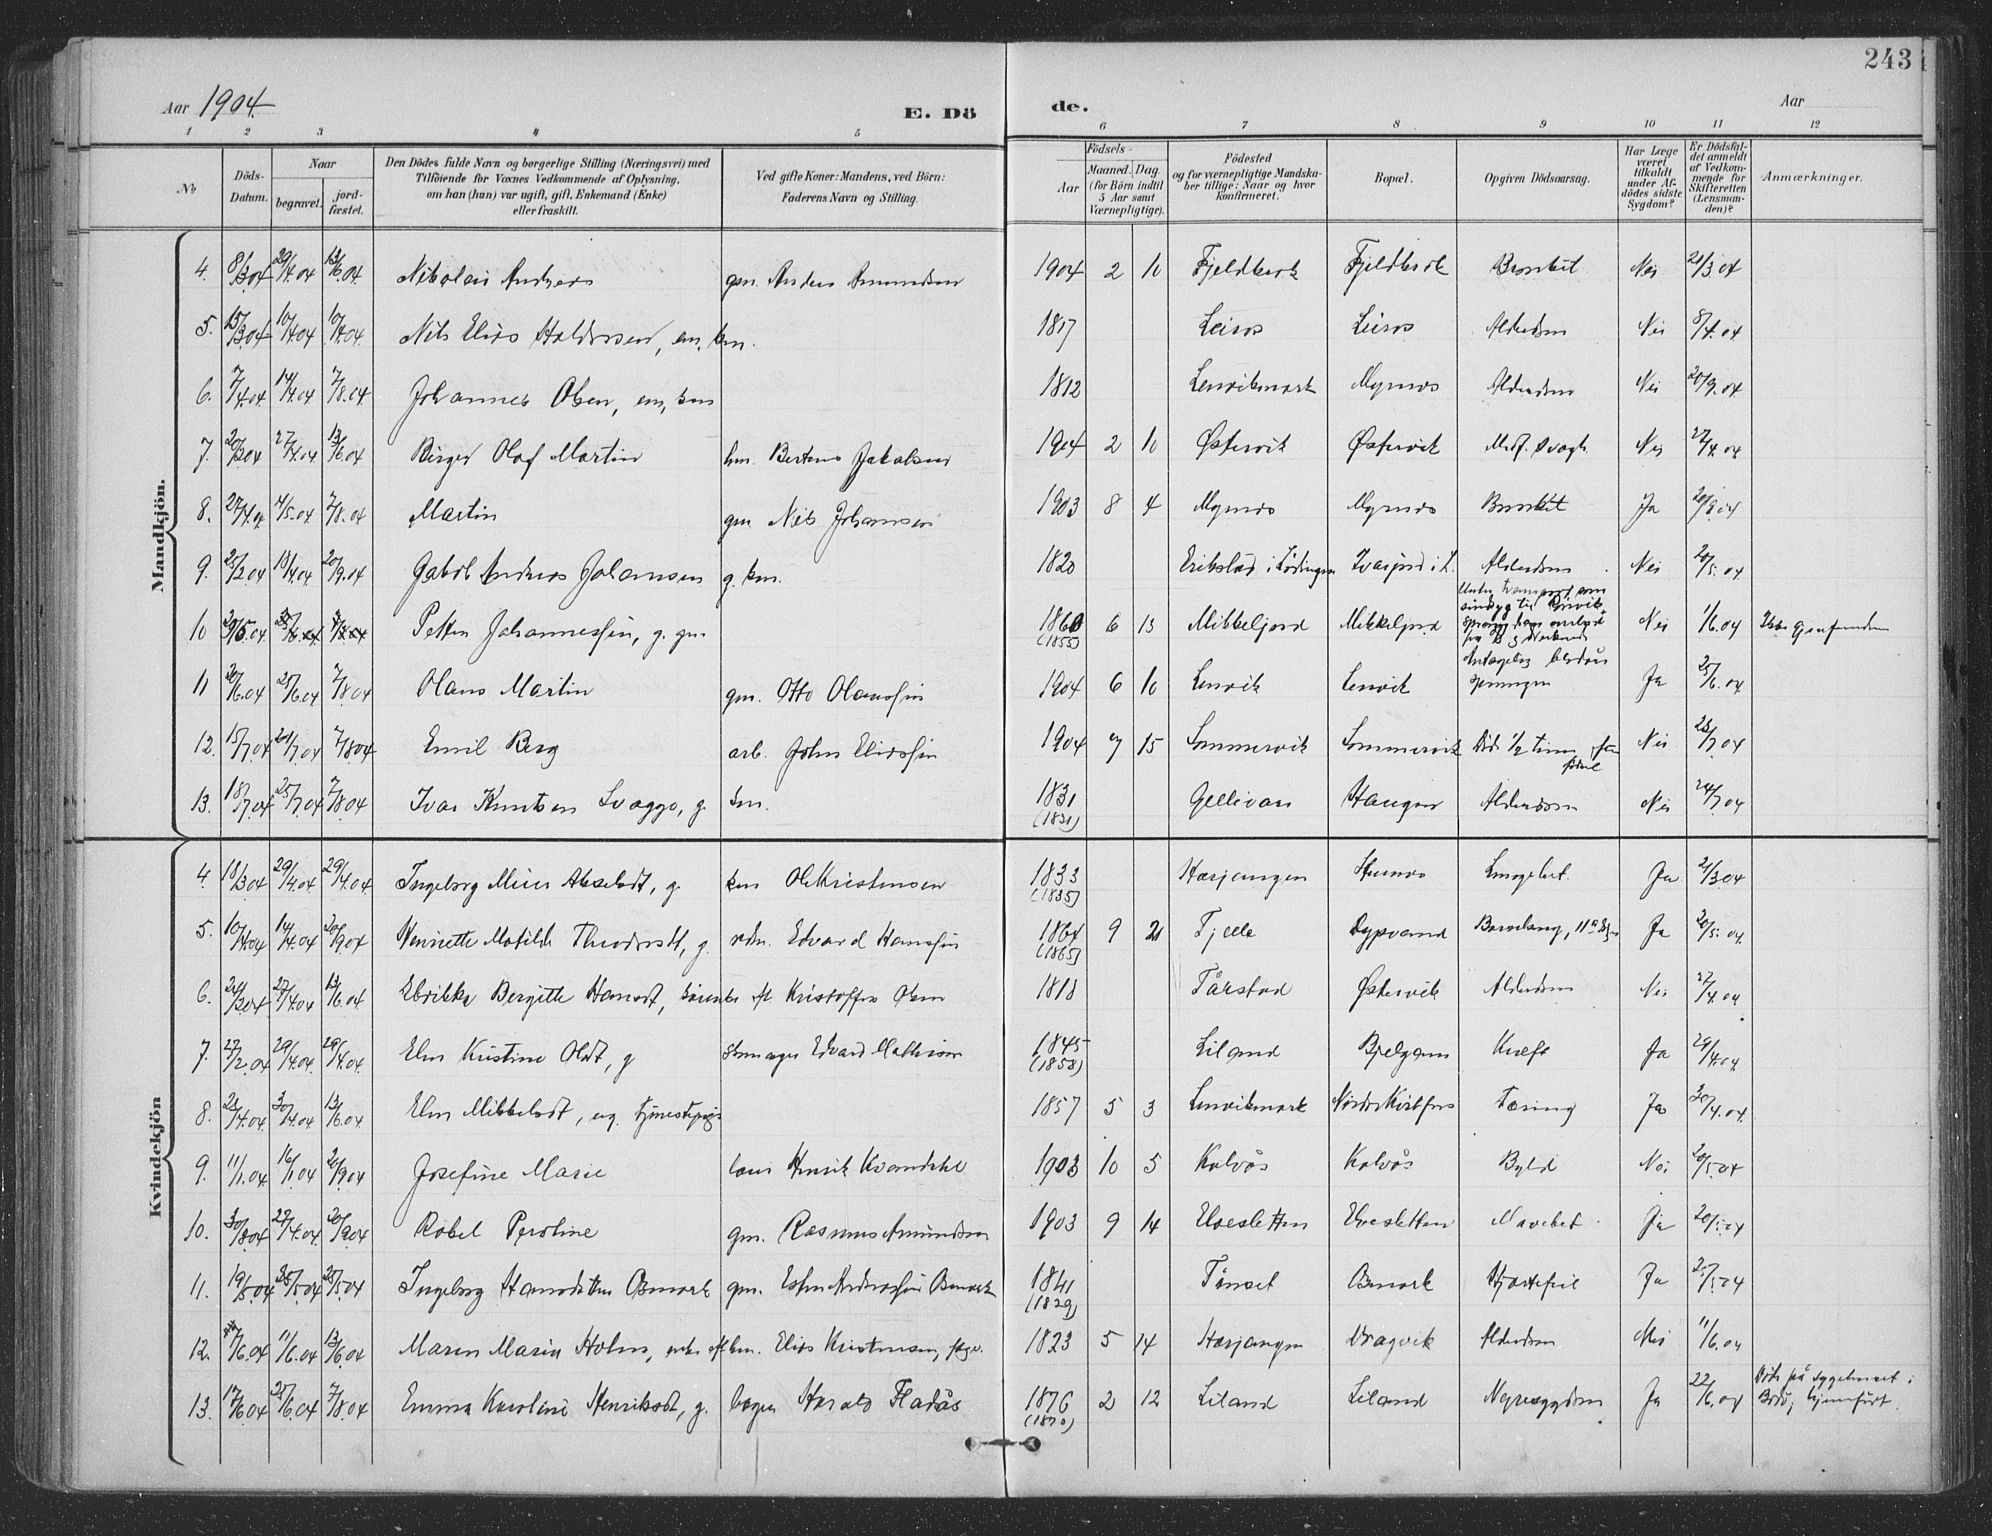 243
Aar 1904.
E. Dö
de.
Aar
1 2 3 4 5 6 7 8 9 10 11 12
No
Döds-Datum.
Naar
begravet.
jord-fæstet.
Den Dödes fulde Navn og borgerlige Stilling (Næringsvei) med
Tilföiende for Voxnes Vedkommende af Oplysning,
om han (hun) var ugift, gift, Enkemand (Enke)
eller fraskilt.
Ved gifte Koner: Mandens, ved Börn:
Faderens Navn og Stilling.
Födsels-
Aar
Maaned. Dag.
(for Börn indtil
5 Aar samt
Værnepligtige).
Födested
og for værnepligtige Mandska-
ber tillige: Naar og hvor
konfirmeret.
Bopæl.
Opgiven Dödsaarsag.
Har Læge
været
tilkaldt
under Af-
dödes sidste
Sygdom?
Er Dödsfal-
det anmeldt
af Vedkom-
mende for
Skifteretten
(Lensman-
den)?
Anmærkninger.
Mandkjön.
4. 8/3.04 29/4.04 13/6.04 Nikolai Andreas gm. Anders Amundsen 1904 2 10 Fjeldbørk Fjeldbørk Bronkit Nei 21/3.04
5. 15/3.04 10/4.04 10/4.04 Nils Elias Haldorsen, em. km. 1817 Leiros Leiros Alderdom Nei 8/4.04
6. 7/4.04 14/4.04 7/8.04 Johannes Olsen, em, km 1812 Lenvikmark Myrnes Alderdom Nei 20/9.04
7. 20/3.04 27/4.04 13/6.04 Birger Olaf Martin Jakobsen 1904 2 10 Østervik Østervik Medf. svagh. Nei 27/4.04
8. 27/4.04 4/5.04 7/8.04 Martin gm Nils Johansen 1903 8 4 Myrnes Myrnes Bronkit Ja 20/9.04
9. 25/2.04 18/4.04 20/9.04 Jakob Andreas Johansen g. km. 1820 Erikstad i Lødingen i L. Alderdom Nei 20/5.04
10 29/5.04 Petter Johannessen, g. gm. 1860 (1855) 6 13 Mikkeljord Mikkeljord Under transport som sindsyg til Nei 1/6.04 Ikke gjenfunden
11 20/6.04 25/6.04 7/8.04 Olaus Martin gm. Otto Olaussen 1904 6 10 Lenvik Lenvik Antagelig blodsprængen Ja 25/6.04
12. 15/7.04 24/7.04 7/8.04 Emil Berg arb. John Eliassen 1904 7 15 Sommervik Sommervik Död 1/2 time efter födsel Nei 23/7.04
13. 18/7.04 25/7.04 7/8.04 Ivar Knutsen Svaggo, g. km. 1831 (1831) Gellivari Haugen Alderdom Nei 24/7.04
Kvindekjön
4. 18/3.04 29/4.04 29/4.04 Ingeborg Akselsdt, g. km Ole Kristensen 1833 (1835) Herjangen Ja 21/3.04
5. 10/4.04 14/4.04 20/9.04 Henriette Matilde Theodorsdt, g. Edvard Hanssen 1864 (1865) 9 21 Fjelle Dypvand Barselseng, Ja 20/5.04
6. 24/3.04 27/4.04 13/6.04 Bergitte Hansdt, ef. Kristoffer Olsen 1818 Tårstad Østervik Alderdom Nei 27/4.04
7. 27/2.04 29/4.04 29/4.04 Elen Kristine Olsdt, g Edvard Mathisen 1845 (1858) Liland Kræft Ja 29/4.04
8. 23/4.04 30/4.04 13/6.04 Elen Mikkelsdt, ug. tjenestepige 1857 5 3 Lenvikmark Tæring Ja 30/4.04
9. 11/1.04 16/1.04 20/9.04 Josefine Marie Henrik Kvandahl 1903 10 5 Kalvås Kalvås Byld Nei 20/5.04
10. 30/3.04 27/4.04 20/9.04 Rakel Peroline gm. Rasmus Amundsen 1903 9 14 Elvesletten Elvesletten Ja 20/5.04
11. 19/5.04 25/5.04 25/5.04 Ingeborg Hansdatter Osmark gm. Esten Anderssen Osmark 1841 (1829) Tönset Osmark Hjertefeil Ja 25/5.04
12. 7/6.04 11/6.04 13/6.04 Maren Maria Holm, enke eft. km. Elias Kristensen, 1823 5 14 Herjangen Dragvik Alderdom Nei 11/6.04
13. 17/6.04 25/6.04 7/8.04 Emma Karoline Henriksdt, g. bager Harald Fladås 1876 (1870) 2 12 Liland Liland Nyresygdom Ja 22/6.04 Döde på sygehuset i Bodö, hjemfört.